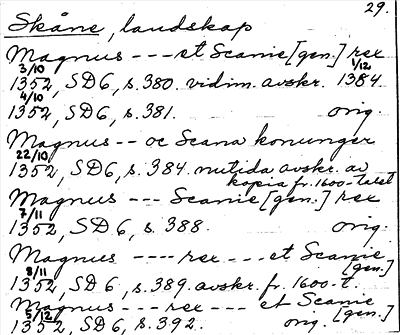 29.
Skåne, landskap
Magnus --- et Scanie [gen.] rex
3/10 1/12
1352, SD6, s.380. vidim. avskr. 1384
4/10
1352, SD6, s.381. orig.
Magnus -- oc Scana konunger
22/10
1352, SD6, s.384. nutida avskr. av
kopia fr. 1600-talet
Magnus --- Scanie [gen.] rex
7/11
1352, SD6, s.388. orig.
Magnus ---- rex --- et Scanie
8/11 [gen.]
1352, SD6, s.389. avskr. fr. 1600-t.
Magnus --- rex --- et Scanie
5/12 [gen.]
1352, SD6, s.392. orig.